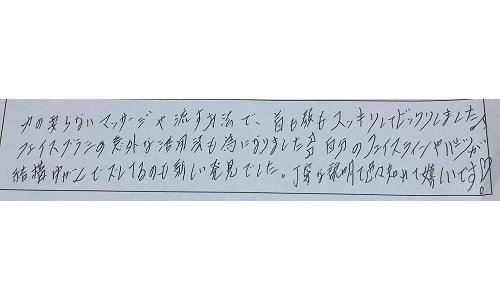 力の要らないマッサージや流す方法で、首も顔もスッキリしてビックリしました♪
フェイスブラシの意外な活用法も為になりました☆ 自分のフェイスラインやパーツが
結構ズレてるのも新しい発見でした。丁寧な説明で色々知れて嬉しいです♡!